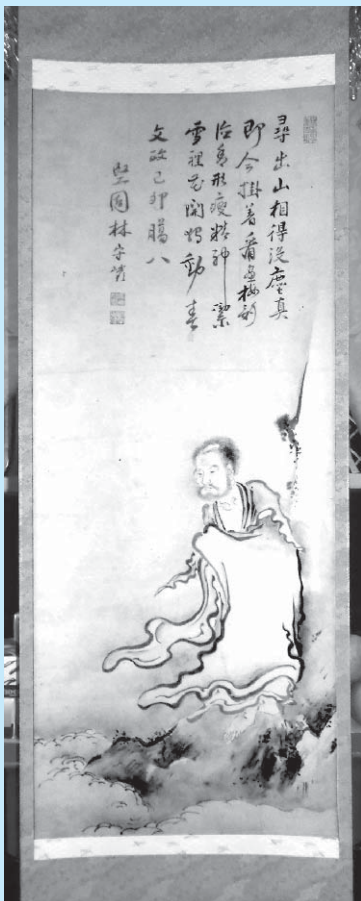 尋出山相得没塵真
即今掛着看梅
形瘦精神潔
雪裡花開獨動春
文政己卯臘八
堅固林守